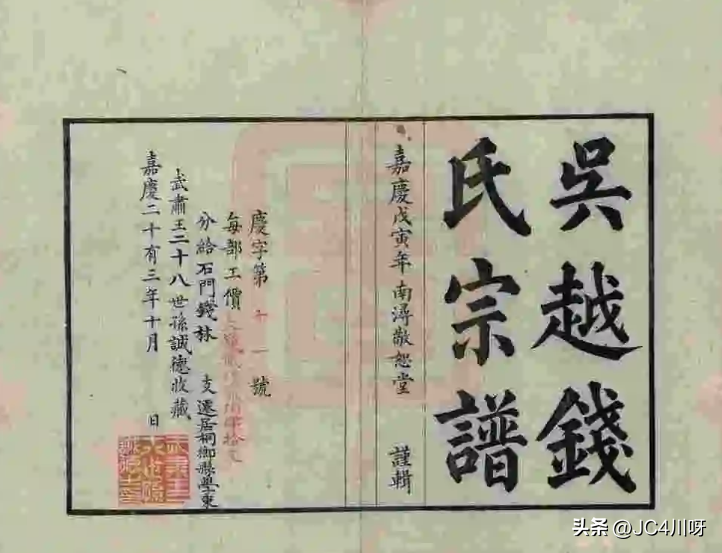 吳越錢
氏宗譜
嘉慶戊寅年南潯敬恕堂 謹輯
慶字第十一號
每部工價
分給石門錢林 支遷居桐鄉縣學東
武肅王二十八世孫誠德收藏
嘉慶二十有三年十月 日
头条 @JC4川呀